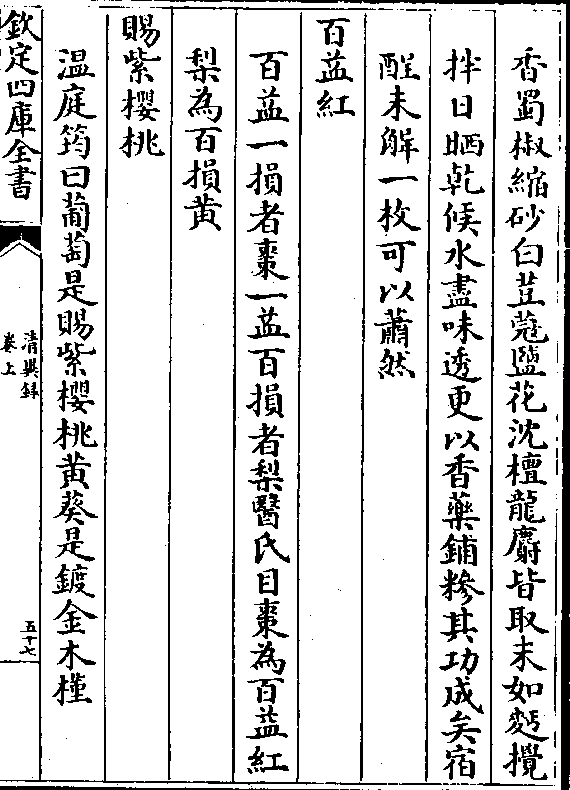 香蜀椒縮砂白荳蔻鹽花沈檀龍麝皆取末如麪攪
拌日晒乾候水盡味透更以香藥鋪糝其功成矣宿
酲未解一枚可以蕭然
百益紅
百益一損者棗一益百損者梨醫氏目棗為百益紅
梨為百損黄
賜紫櫻桃
温庭筠曰葡萄是賜紫櫻桃黄葵是鍍金木槿
欽定四庫全書
清異録
卷上
五十七